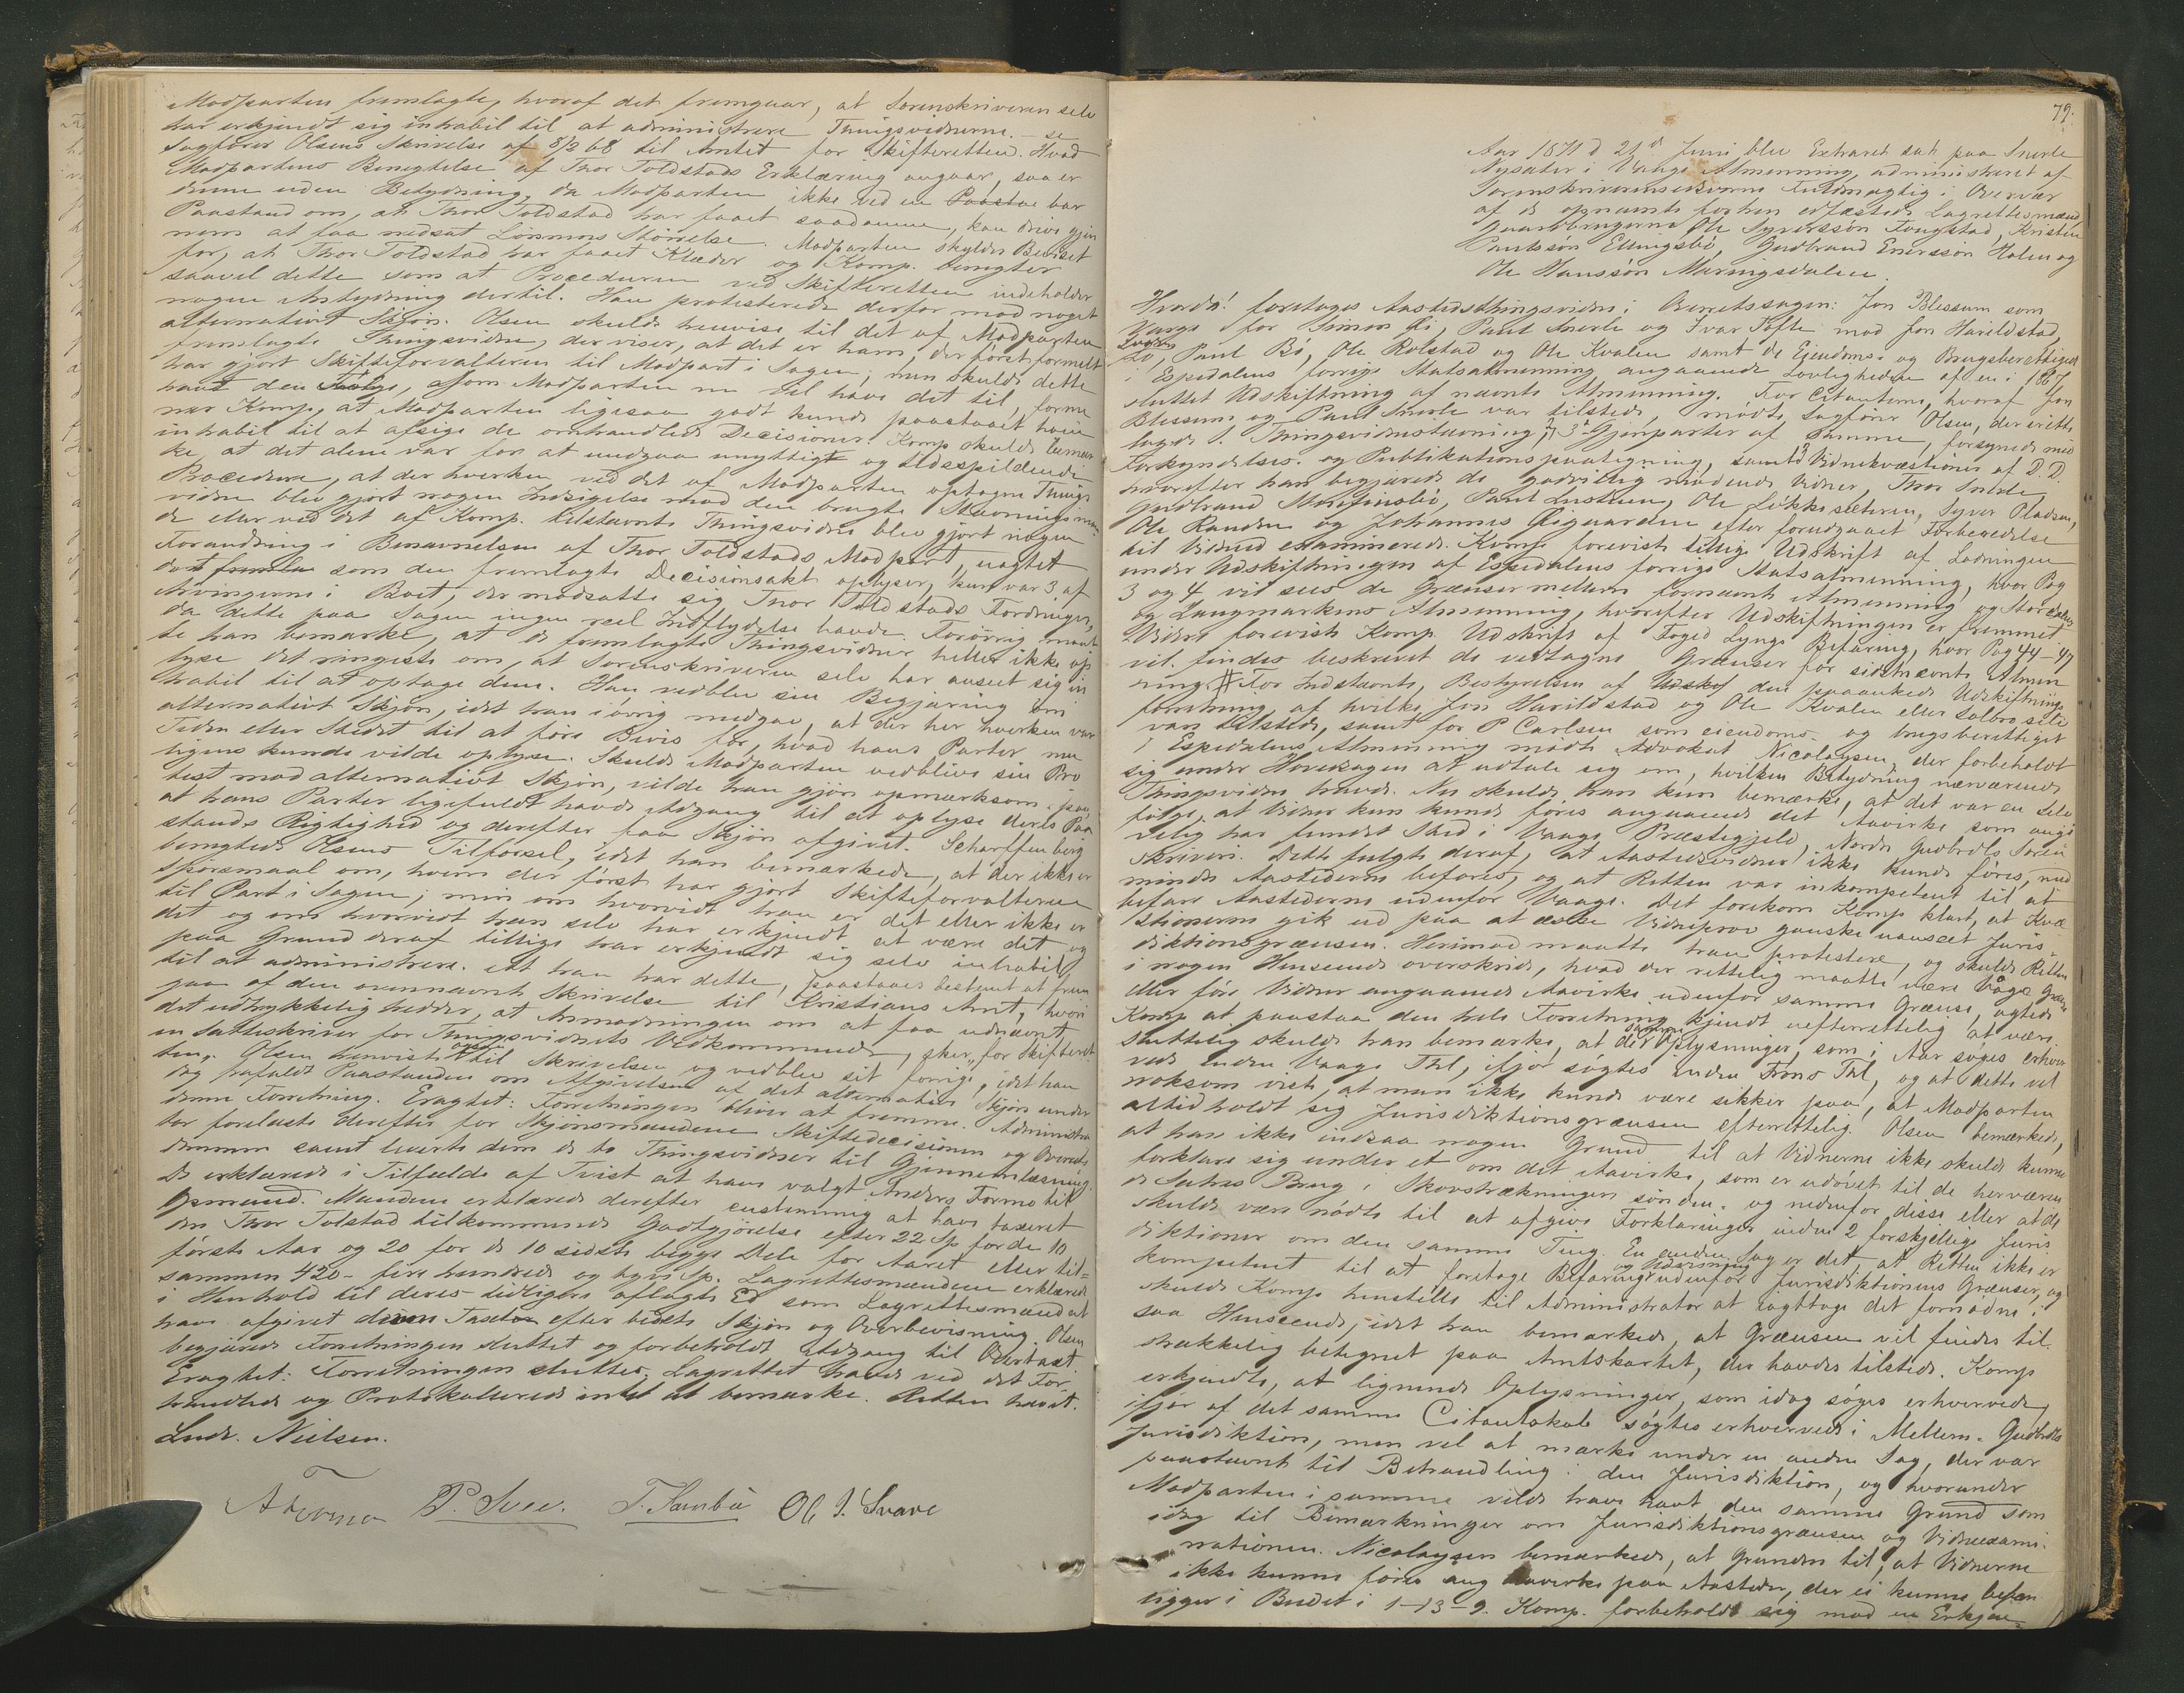 Modparten fremlagte, hvoraf det fremgaar, at Sorenskriveren selv
har erkjendt sig inhabil til at administrere Thingsvidnerne. – se
Sagfører Olsens Skrivelse af 8/3 68 til Amtet for Skifteretten. Hvad
Modpartens Benegtelse af Thor Toldstads Erklæring angaar, saa er
denne uden Betydning, da Modparten ikke ved en Paastae bar
Paastand om, at Thor Toldstad har faaet saadanne, kan drive gjen
nem at faa nedsat Lønnens Størrelse. Modparten skylder Beviset
for, at Thor Toldstad har faaet Klæder og Komp. benegter
saavel dette som at Proceduren ved Skifteretten indeholder
nogen Antydning dertil. Han protesterede derfor mod noget
alternativt Skjøn. Olsen skulde henvise til det af Modparten
fremlagte Thingsvidne, der viser, at det er ham, der først formelt
har gjort Skifteforvalteren til Modpart i Sagen; men skulde dette
havt den Følge, som Modparten nu vil have det til, forme
ner Komp, at Modparten ligesaa godt kunde paastaaet ham
inhabil til at afsige de omhandlede Decisioner. Komp skulde bemær
ke, at det alene var for at undgaa unyttigt og tidsspildende
Procedure, at der hverken ved det af Modparten optagne Things
vidne blev gjort nogen Indsigelse mod den brugte Stævningsmaa
de eller ved det af Komp. tilstævnte Thingsvidne blev gjort nogen
Forandring i Benævnelsen af Thor Toldstads Modpart, uagtet
det fremla som den fremlagte Decisionsakt oplyser, kun var 3 af
Arvingerne i Boet, der modsatte sig Thor Toldstads Fordringer,
da dette paa Sagen ingen reel Indflydelse havde. Forøvrig maat
te han bemærke, at de fremlagte Thingsvidner heller ikke op
lyse det ringeste om, at Sorenskriveren selv har anseet sig in
habil til at optage dem. Han vedblev sin Begjæring om
alternativt Skjøn, idet han iøvrig medgav, at der her hverken var
Tiden eller Stedet til at føre Bevis for, hvad hans Parter mu
ligens kunde vilde oplyse. Skulde Modparten vedblive sin Pro
test mod alternativt Skjøn, vilde han gjøre opmærksom paa,
at hans Parter ligefuldt havde Adgang til at oplyse deres Paa
stands Rigtighed og derefter faa Skjøn afgivet. Scharffenberg
benegtede Olsens Tilførsel, idet han bemærkede, at der ikke er
Spørsmaal om, hvem der først har gjort Skifteforvalteren
til Part i Sagen; men om hvorvidt han er det eller ikke er
det og om hvorvidt han selv har erkjendt at være det og
paa Grund deraf tillige har erkjendt sig selv inhabil
til at administrere. At han har dette, paastaaes bestemt at frem
gaa af den ovennævnte Skrivelse til Kristians Amt, hvori
det udtrykkelig hedder, at Anmodningen om at faa udnævnt
en Sætteskriver for Thingsvidnets Vedkommende, sker „for Skifteret
ten„. Olsen henviste ogsaa til Skrivelsen og vedblev sit forrige, idet han
dog frafaldt Paastanden om Afgivelsen af det alternative Skjøn under
denne Forretning. Eragtet: Forretningen bliver at fremme. Administra
tor forelæste derefter for Skjønsmændene Skiftedecisionen og Overrets
dommen samt leverte dem de to Thingsvidner til Gjennemlæsning.
De erklærede i Tilfælde af Tvist at have valgt Anders Formo til
Opmand. Mændene erklærede derefter enstemmig at have taxeret
den Thor Tolstad tilkommende Godtgjørelse efter 22 Sp for de 10
første Aar og 20 for de 10 sidste begge Dele for Aaret eller til=
sammen 420 – fire hundrede og tyve Sp. Lagrettesmændene erklærede
i Henhold til deres tidligere aflagte Ed som Lagrettesmænd at
have afgivet denne Taxten efter bedste Skjøn og Overbevisning. Olsen
begjærede Forretningen sluttet og forbeholdt Adgang til Overtaxt.
Eragtet: Forretningen sluttes. Lagrettet havde ved det For-
handlede og Protokollerede intet at bemærke. Retten hævet.
Ludv. Nielsen.
A Formo P. Svee. T. Sandbu Ol. J. Svare
79.
Aar 1871 d 21de Juni blev Extraret sat paa Snerle
Nysæter i Vaage Almenning, administreret af
Sorenskriverensedsvorne Fuldmægtig i Overvær
af de opnævnte forhen edfæstede Lagrettesmænd
Gaardbrugerne Ole Syverssøn Tongstad, Kristen
Paulssøn Ellingsbø, Gudbrand Enerssøn Holen og
Ole Hanssøn Maringsdalen.
Hvorda! foretoges Aastedsthingsvidne i Overretssagen: Jon Blessum som
Værge for Simen Li, Paul Snerle og Ivar Tofte mod Jon Harildstad,
Lo, Paul Bø, Ole Rolstad og Ole Kvalen samt de Ejendoms- og Brugsberettigede
i Espedalens forrige Statsalmenning angaaende Lovligheden af en i 1867
sluttet Udskiftning af nævnte Almenning. For Citanterne, hvoraf Jon
Blessum og Paul Snerle var tilstede, mødte Sagfører Olsen, der irette
lagde 1. Thingsvidnestævning, 2 3de Gjenparter af samme, forsynede med
Forkyndelses- og Publikationspaategning, samt 3 Vidnekvæstioner af D. D.
hvorefter han begjærede de godvillig mødende Vidner, Thor Snerle,
Gudbrand Storfinsbø, Paul Lusteen, Ole Løkkesæteren, Syver Pladsen,
Ole Randen og Johannes Øiguarden efter forudgaaet Forberedelse
til Vidned examinerede. Komp foreviste tillige Udskrift af Ladningen
under Udskiftningen af Espedalens forrige Statsalmenning, hvor Pag
3 og 4 vil sees de Grænser mellem fornævnte Almenning og Storødens
og Langmarkens Almenning, hvorefter Udskiftningen er fremmet.
Videre foreviste Komp. Udskrift af Foged Lynge Befaring, hvor Pag 44–47
vil findes beskrevet de vedtagne Grænser for sidstnævnte Almen
ning. # For Indstævnte, Bestyrelsen af Udskif den paaankede Udskiftnings
forretning, af hvilke Jon Harildstad og Ole Kvalen eller Solbro selv
var tilstede, samt for P Carlsen som eiendoms- og brugsberettiget
i Espedalens Almenning mødte Advokat Nicolaysen, der forbeholdt
sig under Hovedsagen at udtale sig om, hvilken Betydning nærværende
Thingsvidne havde. Nu skulde han kun bemærke, at det var en Selv
følge, at Vidner kun kunde føres angaaende det Aavirke som angi
velig har fundet Sted i Vaage Præstegjeld, Nordre Gudbrdls Soren
skriveri. Dette fulgte deraf, at Aastedsvidner ikke kunde føres, med
mindre Aastederne befares, og at Retten var inkompetent til at
befare Aastederne udenfor Vaage. Det forekom Komp klart, at Kvæ
stionerne gik ud paa at æske Vidneprov ganske uanseet Juris
diktionsgrænsen. Herimod maatte han protestere, og skulde Retten
i nogen Henseende overskride, hvad der rettelig maatte være Vaage Grænse
eller føre Vidner angaaende Aavirke udenfor samme Grænse, agtede
Komp at paastaa den hele Forretning kjendt uefterrettelig at være.
Sluttelig skulde han bemærke, at de samme Oplysninger, som i Aar søges erhver
vede inden Vaage Thl, ifjor søgtes inden Frons Thl, og at dette vel
noksom viste, at man ikke kunde være sikker paa, at Modparten
altid holdt sig Jurisdiktionsgrænsen efterrettelig. Olsen bemærkede,
at han ikke indsaa nogen Grund til at Vidnerne ikke skulde kunne
forklare sig under et om det Aavirke, som er udøvet til de herværen
de Sætres Brug i Skovstrækningen sønden- og nedenfor disse eller at de
skulde være nødte til at afgive Forklaringer inden 2 forskjellige Juris
diktioner om den samme Ting. En anden Sag er det, at Retten ikke er
kompetent til at foretage Befaring og Udvisning udenfor Jurisdiktionens Grænser, og
skulde Komp henstille til Administrator at iagttage det fornødne i
saa Henseende, idet han bemærkede, at Grænsen vil findes til
strækkelig betegnet paa Amtskartet, der havdes tilstede. Komp
erkjendte, at lignende Oplysninger, som idag søges erhvervede,
ifjor af det samme Citantskab søgtes erhvervede i Mellem-Gudbrdls
Jurisdiktion, men vel at mærke under en anden Sag, der var
paastævnt til Behandling i den Jurisdiktion, og hvorunder
Modparten i samme vilde have havt den samme Grund som
idag til Bemærkninger om Jurisdiktionsgrænsen og Vidneexami-
nationen. Nicolaysen bemærkede, at Grunden til, at Vidnerne
ikke kunne føres ang Aavirke paa Aasteder, der ei kunne befares
ligger i Budet i 1–13–9. Komp. forbeholdt sig mod en Erkjen=